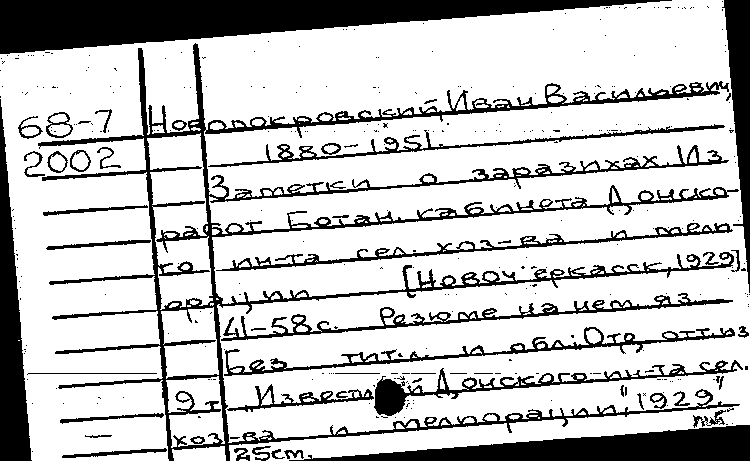 68-7 Новопокровский, Иван Васильевич,
2002 1880-1951.
Заметки о заразихах. Из
работ Ботан. кабинета Донско-
го ин-та сел. хоз-ва и мели-
орации [Новочеркасск, 1929]
41-58 с. Резюме на нем. яз.
Без тит. л. и обл.; Отд. отт. из
9 т. „Известий Донского ин-та сел.
хоз-ва и мелиорации", 1929."
25 cm.